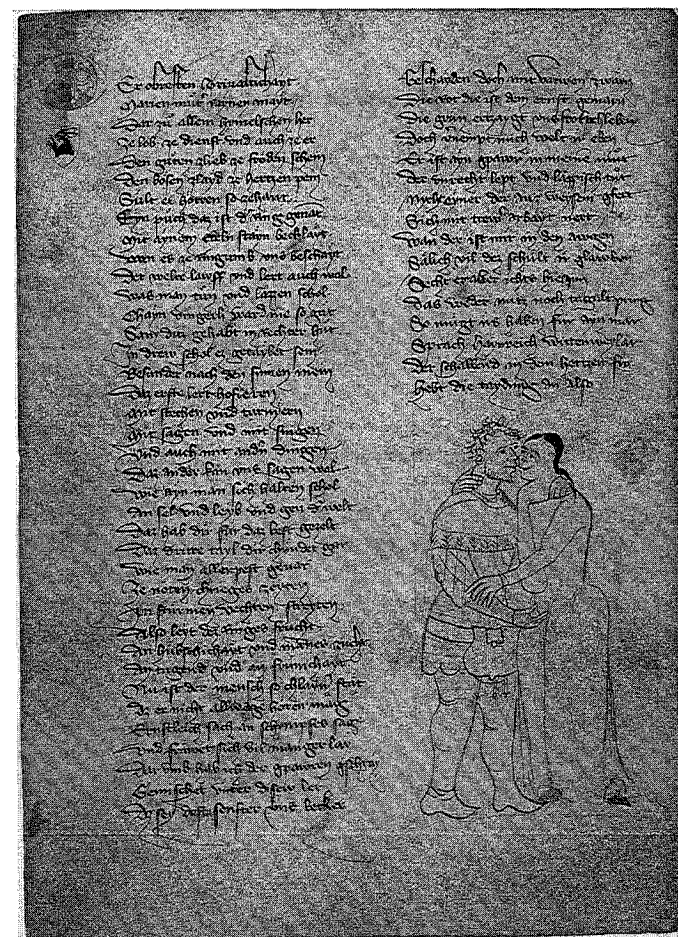 Marien mueter rainen mayt
allem hymelschen her
Ze lob ze dienst vnd auch ze er
Den guten zlieb ze froden schein
Den bosen zlayd ze hertzen pein
Sült es horren so gehant
Eyn puch daz ist d ring genant
Mit aynem edeln stayn bechlayt
Wan es ze ring vmb vns beschayt
Der welte lawff vnd lert auch wol
Was man tun vnd lassen schol
Chayn vingerli ward nie so gut
Sam ditz gehabt in rechter hut
In drew schol es getaylet sein
Besunder nach den sinnen mein
Daz erste lert hofieren
Mit stechen vnd turnieren
Mit sagen vnd mit singen
Vnd auch mit andn dingen
Daz ander kan vns sagen wol
Wie ayn man sich halten schol
An sel vnd leyb vnd gen d welt
Daz hab dir für daz best gezelt
Daz dritte tayl dir chündet gar
Wie man allerpest gevar
Ze noten chrieges zeyten
In sturmen vechten streyten
Also lert dez ringes frucht
An hübschichayt vnd mannes zucht
An tugend vnd an frumchayt
Nu ist der mensch so
Dz er nicht allweg horen mag
Ernstleich sach an schimpfes sag
Vnd frewet sich vil manger lay
Dar vmb hab ich der gpawren gschray
Gemischet vnter disew ler
Daz sey dest senfter vns becher
Geschayden doch mit varwen zwain
Die rot die ist dem ernst gemain
Die grün ertzaigt vns
Doch vernempt mich
Er ist ayn gpawr in meinem mut
Der vnrecht lept vnd tut
Nicht ayner der aus weysem gfert
Sich mit trewr arbayt nert
Wan der ist mir in den awgen
Sälich vil daz schült ir glawben
Secht es aber ichts
Das weder nutz noch
So mugt irs haben für ayn mär
Sprach Haynreich Wittenweylar
Der schallend in dem hertzen
Hebt die tayding an also